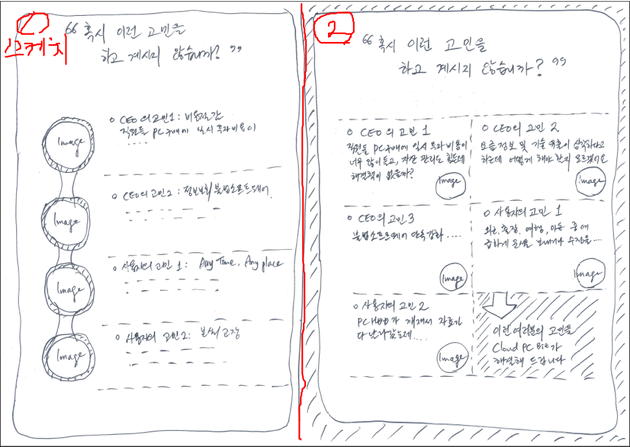 1
스케치
“ 혹시 이런 고민을
하고 계시지 않습니까? ”
Image
o CEO의 고민 1 : 비용절감
직원들 PC 구매에 일시 투자비용이
Image
o CEO의 고민 2 : 정보보안/불법소프트웨어
Image
o 사용자의 고민 1 : Any Time, Any place
Image
o 사용자의 고민 2 :
2
“ 혹시 이런 고민을
하고 계시지 않습니까? ”
o CEO의 고민 1
직원들 PC 구매에 일시 투자비용이
너무 많이 들고, 자산 관리도 힘든데
해결책이 없을까?
Image
o CEO의 고민 2
요즘 정보 및 기술 유출이 심각하다고
하는데 어떻게 해야 할지 모르겠어요
Image
o CEO의 고민 3
불법소프트웨어 단속강화 ....
Image
o 사용자의 고민 1
외근, 출장, 여행, 이동 중에
급하게 문서를 보내거나 수정을...
Image
o 사용자의 고민 2
PC HDD가 깨져서 자료가
다 날아갔는데....
Image
이런 여러분의 고민을
Cloud PC Biz가
해결해 드립니다